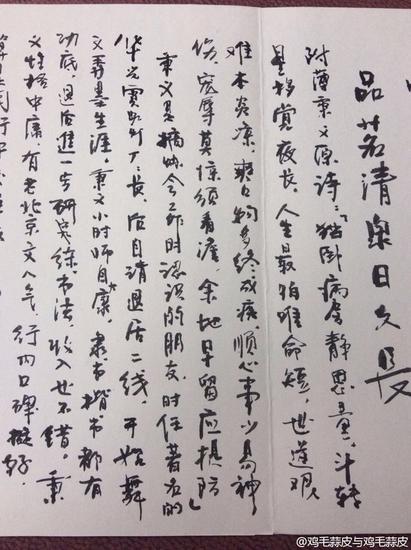 品茗清樂日久長
附薄秉文原诗：“独卧病舍静思量，斗转
星移赏夜长。人生最怕唯命短，世道艰
难本炎凉。爽口物多终成疾，顺心事少易神
伤。宠辱莫惊须看淡，余地早留应提防」
秉文是搞会工作时认识的朋友，时任著名的
华光实厂厂长，后自请退居二线，开始舞
文弄墨生涯。秉文小时师自康，隶书楷书都有
功底，退后进一步研究练书法，收入也不错。秉
文性格中庸，有老北京文人气，行内口碑挺好。
@鸡毛蒜皮与鸡毛蒜皮